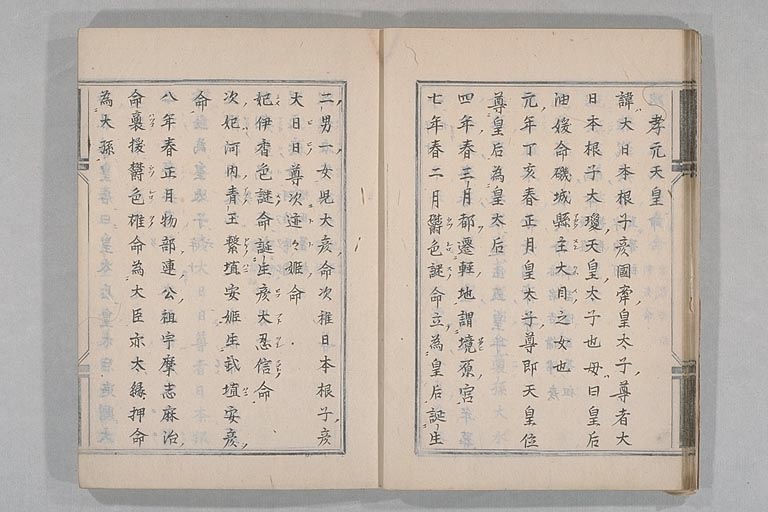 孝元天皇
諱大日本根子彦國牽皇太子尊者大
日本根子太瓊天皇太子也母曰皇后
油媛命磯城縣主大目之女也
元年丁亥春正月皇太子尊即天皇位
尊皇后為皇太后
四年春三月都遷輕地謂境原宮
七年春二月欝色謎命立為皇后誕生
二男一女兒大彦命次稚日本根子彦
大日日尊次迹々姬命
妃伊香色謎命誕生彦太忍信命
次妃河内青玉繫埴安姬生武埴安彦
命
八年春正月物部連公祖宇摩志麻治
命裏援欝色雄命為大臣亦太緣押命
為大孫